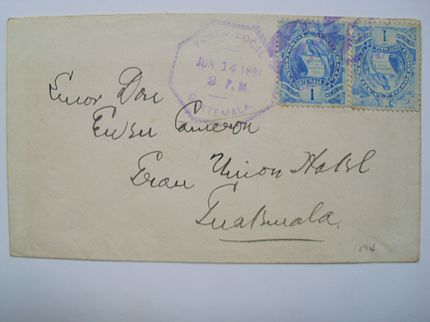 POSTAL LOCAL
JUN 14 189
2 P.M.
GUATEMALA
1
1
Señor Don
Ewen Cameron
Gran Union Hotel
Guatemala.
1894